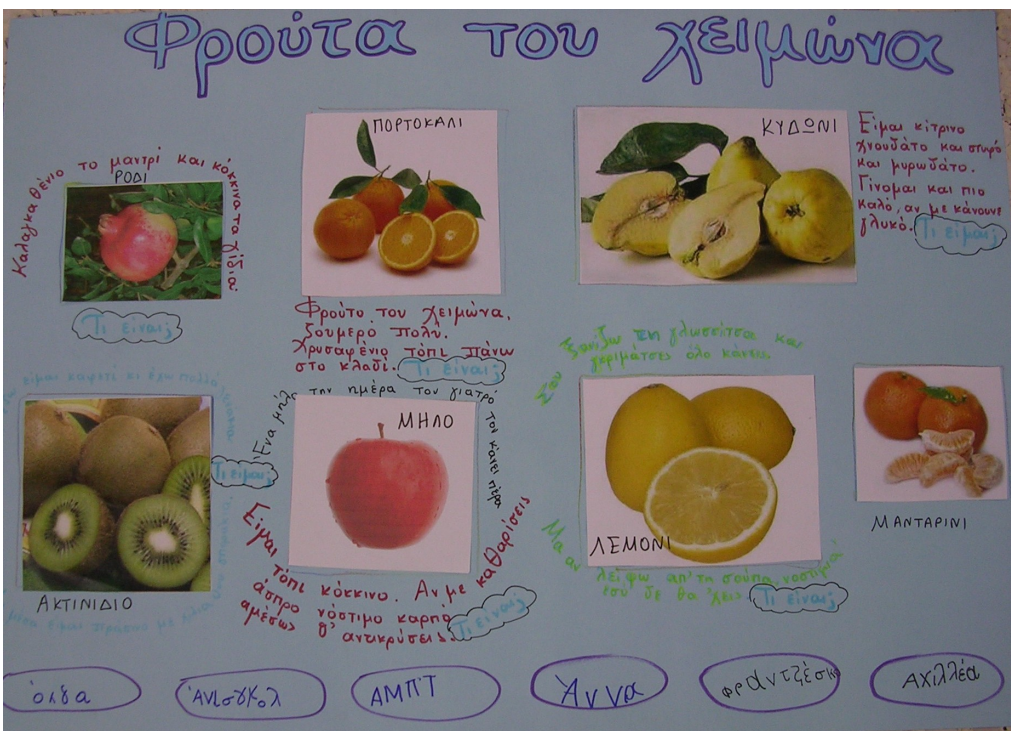 Φρούτα του χειμώνα
Καλαγκαθένιο το μαντρί και κόκκινα τα γίδια
ΡΟΔΙ
Τι είναι;
ΠΟΡΤΟΚΑΛΙ
Φρούτο του χειμώνα,
ζουμερό πολύ.
Χρυσαφένιο τόπι πάνω
στο κλαδί.
Τι είναι;
ΚΥΔΩΝΙ
Είμαι κίτρινο
χνουδάτο και στυφό
και μυρωδάτο.
Γίνομαι και πιο
καλό, αν με κάνουνε
γλυκό.
Τι είμαι;
είμαι καφετί κι έχω πολλά
μέσα είμαι πράσινο με
Τι είμαι;
ΑΚΤΙΝΙΔΙΟ
Ένα μήλο την ημέρα τον γιατρό τον κάνει πέρα
ΜΗΛΟ
Είμαι τόπι κόκκινο. Αν με καθαρίσεις
άσπρο νόστιμο καρπό
αμέσως θ' αντικρύσεις.
Τι είναι;
Σου ξινίζω τη γλωσσίτσα και
γκριμάτσες όλο κάνεις.
ΛΕΜΟΝΙ
Μα αν λείψω απ'τη σούπα, νοστιμιά,
εσύ δε θα 'χεις.
Τι είναι;
ΜΑΝΤΑΡΙΝΙ
όλγα
Άνισουκολ
ΑΜΠΤ
Άννα
Φραντζέσκο
Αχιλλέα